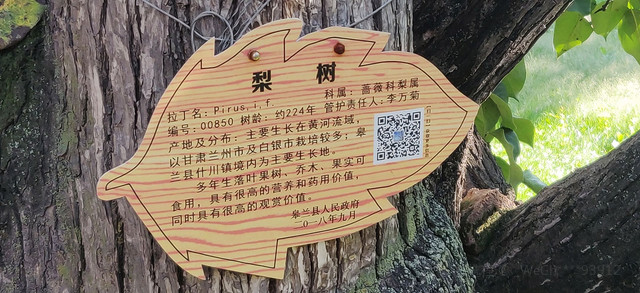 梨 树
拉丁名：Pirus, i, f. 科属：蔷薇科梨属
编号：00850 树龄：约224年 管护责任人：李万菊
产地及分布：主要生长在黄河流域，
以甘肃兰州市及白银市栽培较多；皋
兰县什川镇境内为主要生长地。
多年生落叶果树、乔木、果实可
食用，具有很高的营养和药用价值，
同时具有很高的观赏价值。
皋兰县人民政府
二〇一八年九月